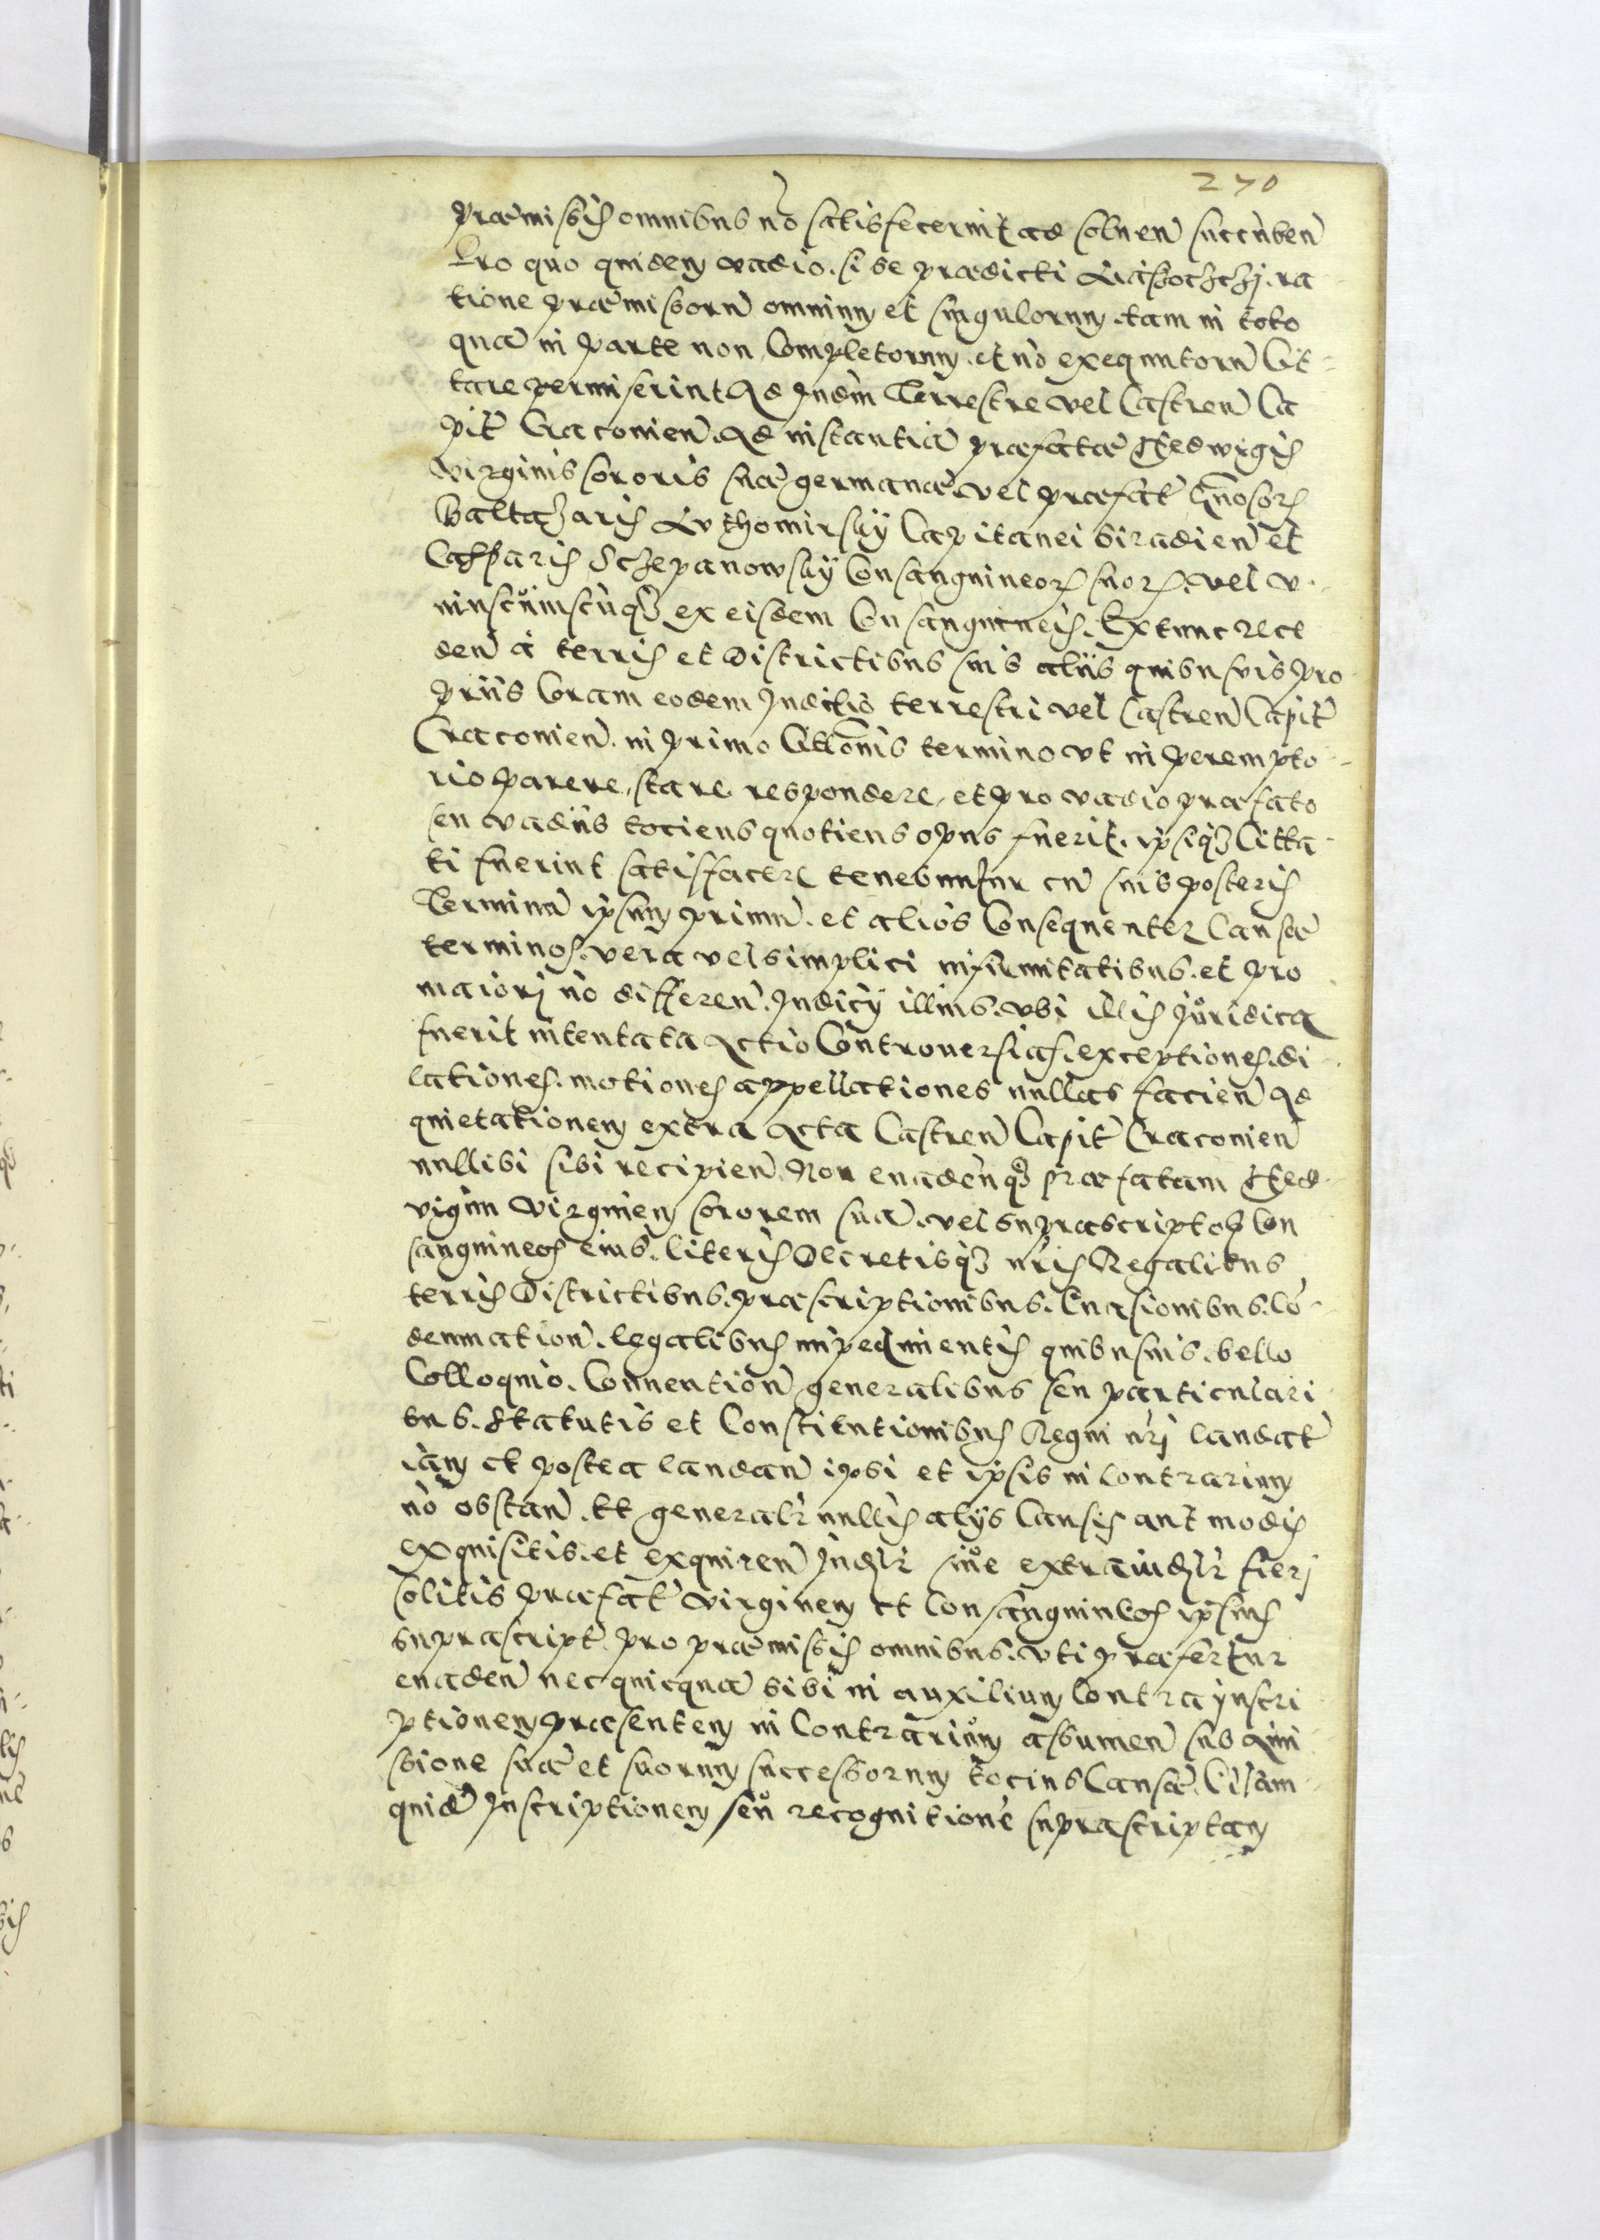 270
præmissis omnibus nō satisfecerint ad soluen̄ succūben̄
Pro quo quidem vadio. si se prædicti Liassoczczy. ra-
tione præmissorū omnium et singulorum. tam in toto
quā in parte non Completorum. et nō exequutorū Cit-
tare permiserint Ad Iudm̄ Terrestre vel Castren̄ Ca
pit̄ Cracouien̄. Ad instantiā præfatæ Hedwigis
virginis sororis suæ germanæ. vel præfat̄ Gn̄osorū
Baltazaris Luthomirsky Capitanei Siradien̄ et
Casparis Sczepanowsky Consanguineorū suorū. vel v-
niuscūiuscūqz ex eisdem Consanguineis. Extunc rece
den̄ à terris et Districtibus suis aliis quibusvis pro-
priis Coram eodem Iudicio terrestri vel Castren̄ Capit̄
Cracouien̄. in primo Citt̄onis termino vt in perempto-
rio parere, stare respondere, et pro vadio præfato
seu vadiis tociens quotiens opus fuerit. ipsiqz Citta-
ti fuerint satisfacere tenebuntur cū suis posteris
Terminū ipsum primū. et alios Consequenter Causæ
terminos. vera vel simplici infirmitatibus. et pro
maiori nō differen̄. Iudicy illius. vbi illis Iuridica
fuerit intentata Actio Controuersias. exceptiones. di-
lationes. motiones appellationes nullas facien̄ Ad
quietationem extra Acta Castren̄ Capit̄ Cracouien̄
nullibi sibi recipien̄. Non euaden̄qz præfatam Hed-
vigim virginem sororem suā. vel suprascriptos Con
sanguineos eius. literis Decretisqz n̄ris Regalibus
terris Districtibus. præscriptionibus. Euasionibus. Cō-
demnation̄. legalibus impedimentis quibusuis. bello
Colloquio. Conuention̄ generalibus seu particulari-
bus. Statutis et Constitutionibus Regni n̄ri laudat̄
iam et postea laudan̄ ipsi et ipsis in Contrarium
nō obstan̄. Et generalr̄ nullis alys Causis aut modis
exquisitis. et exquiren̄ Iudlr̄ siue extraiudlr̄ fieri
solitis præfat̄ virginem et Consanguineos ipsius
suprascript̄. pro præmissis omnibus. vti præfertur
euaden̄ nec quicquā sibi in auxilium Contra ynscri-
ptionem præsentem in Contrarium assumen̄ sub Ami
ssione suæ et suorum successorum tocius Causæ. Etiam
quidē Inscriptionem seu recognitionē suprascriptam